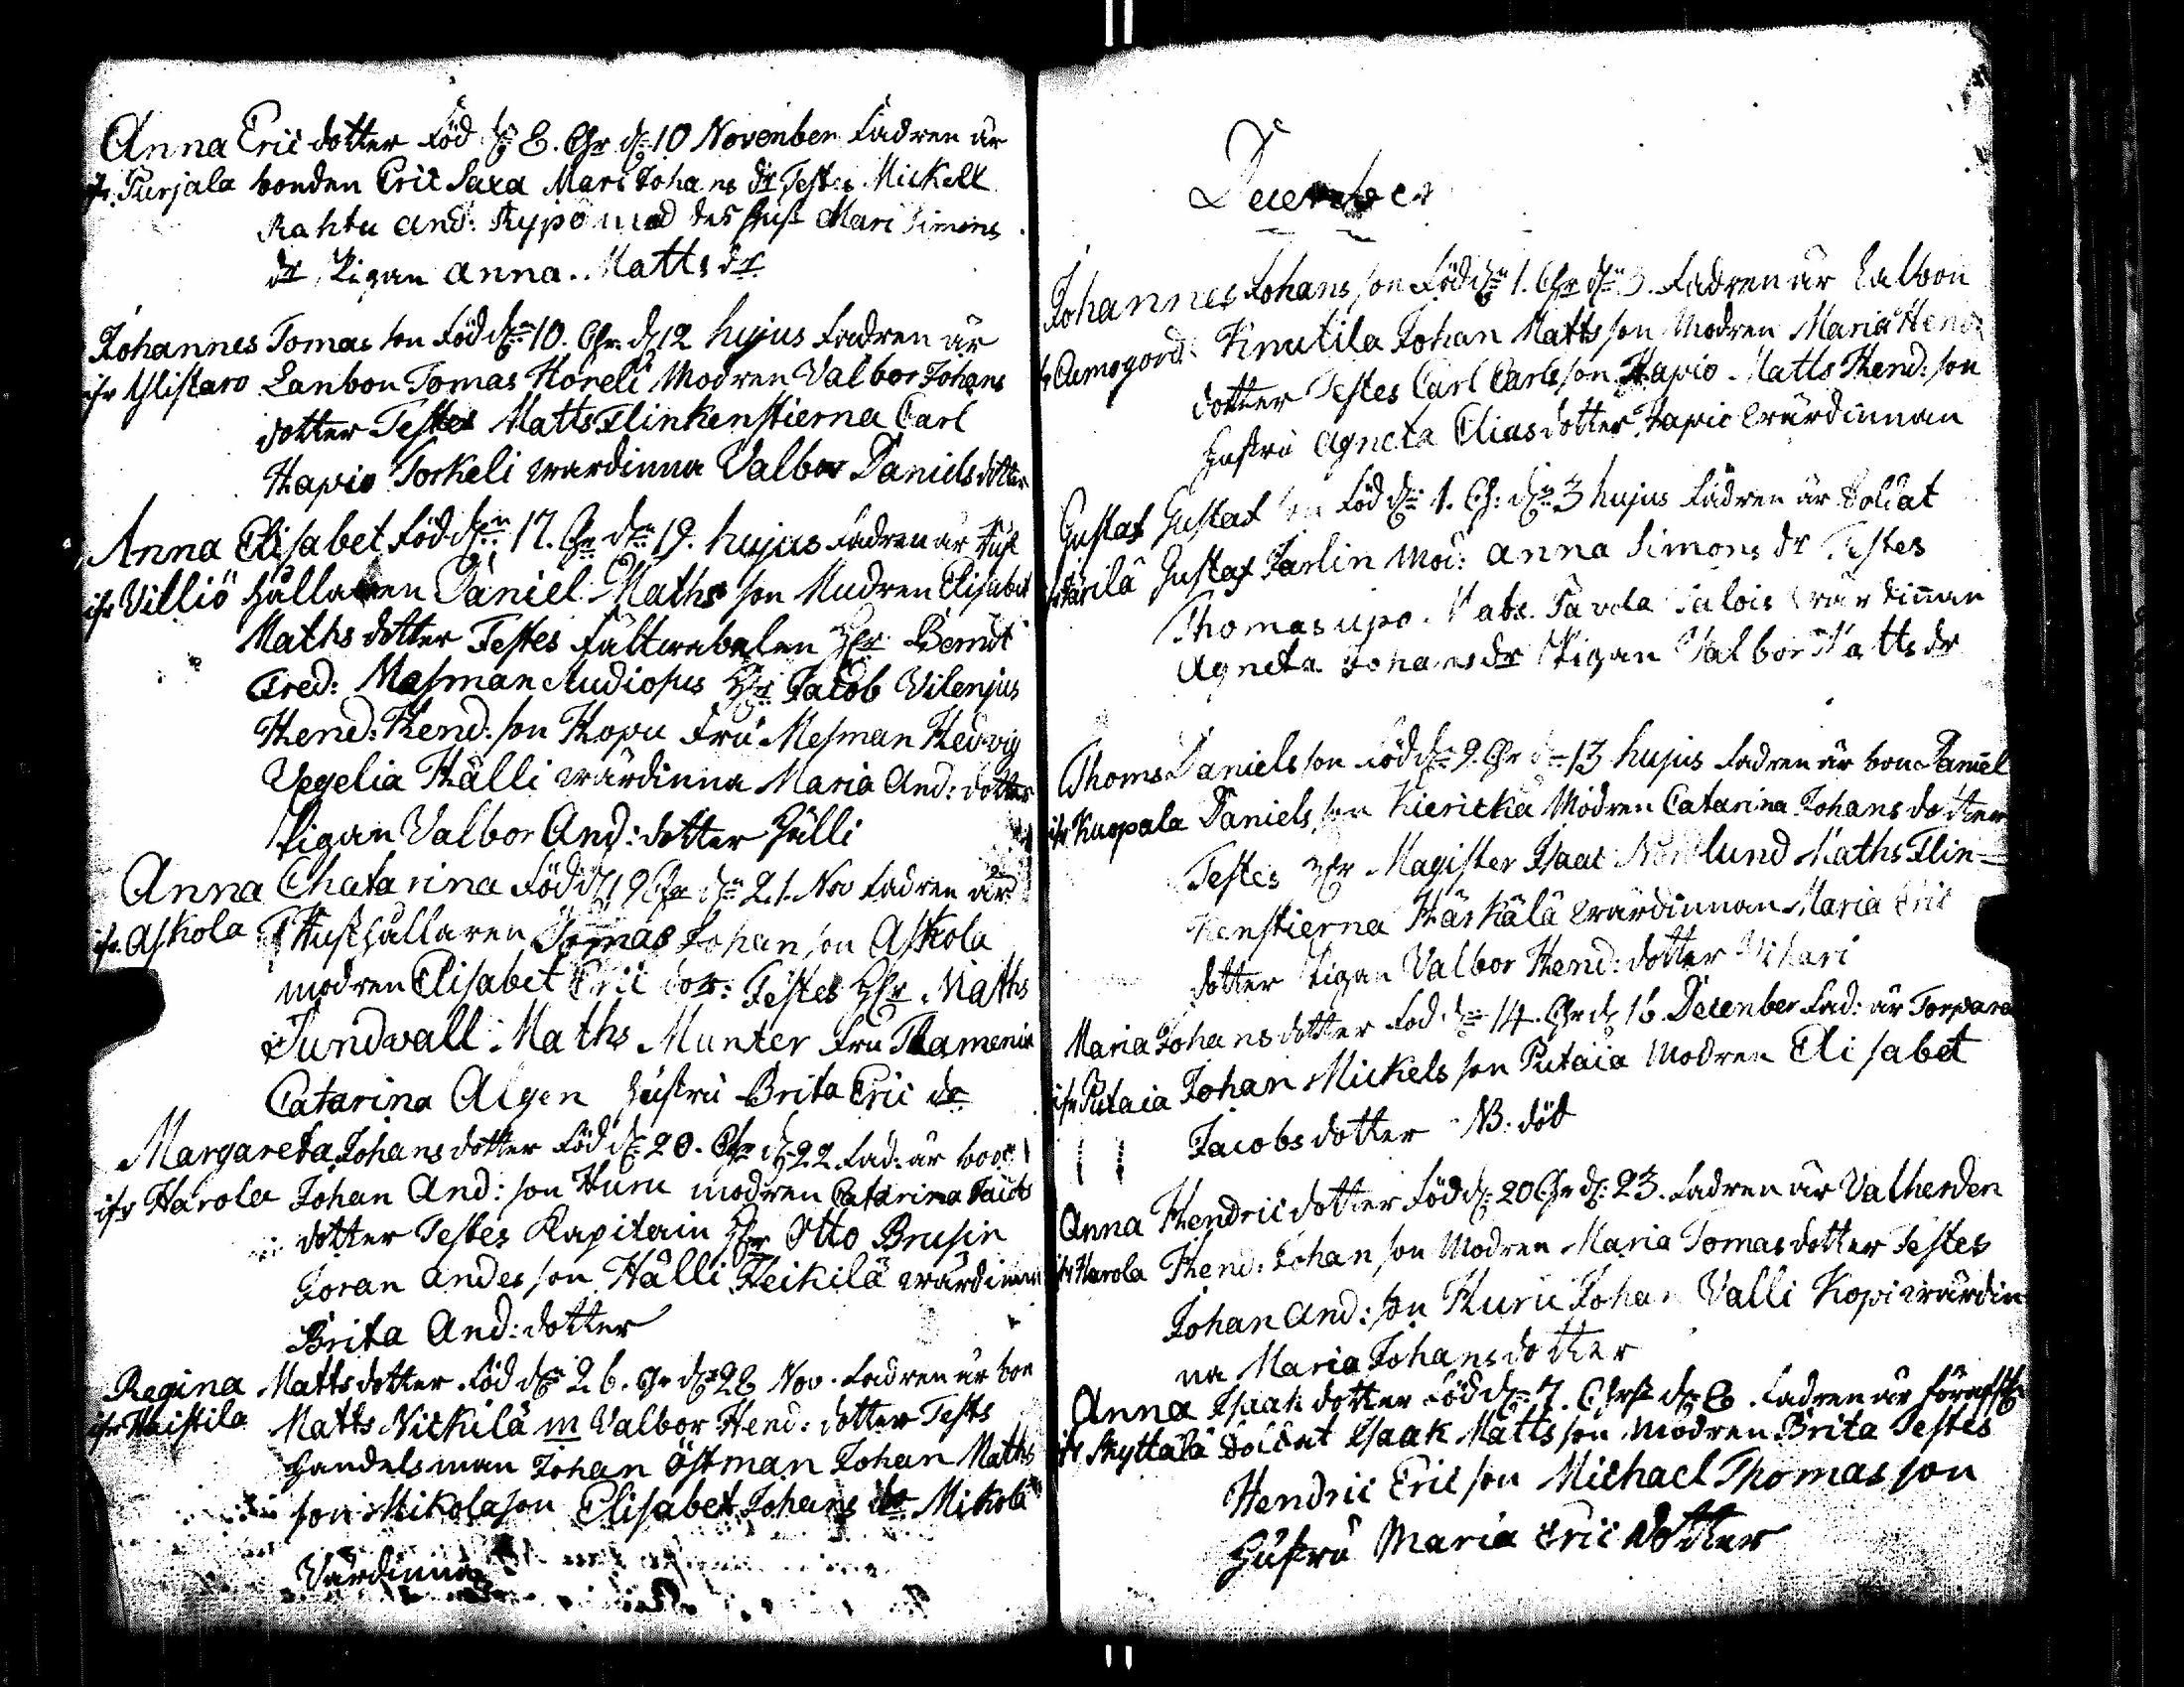 Anna Eric dotter Föd dn 8. Chr dn 10 November Fadren är
fr. Purjala bonden Eric Saxa Mari Johans dr Testes Mickell
Rahtu And: Rypö med des hust Mari Simons
dr Pigan Anna Matts dr
Johannes Tomas son Föd dn 10. Chr. d 12 hujus Fadren är
ifr Ylistaro Lanbon Tomas Horeli Modren Valbor Johans
dotter Testes Matts Flinkenstierna Carl
Hapio Torkeli wardinna Valbor Daniels dotter
Anna Elisabet Föd dn 17. Chr dn 19. hujus Fadren är Hus
ifr Villiö hållaren Daniel Maths son Modren Elisabet
Maths dotter Testes Fältwäbelen Hr Berndt
Fred: Mesman Studiosus Hr Jacob Vilenius
Hend: Hend: son Hopu Fru Mesman Hedvig
Vegelia Hälli wärdinna Maria And: dotter
Pigan Valbor And: dotter Hälli
Anna Chatarina Föd d 19 Chr dn 21. Nov Fadren är
ifr. Askola Hushållaren Tomas Johan son Askola
modren Elisabet Eric dotr: Testes Hr Maths
Sundvall Maths Munter Fru
Catarina Algen hustru Brita Eric dr
Margareta Johans dotter Föd dn 20. Chr dn 22 Fad: är bon
ifr Harola Johan And: son Huru modren Catarina Jacobs
dotter Testes Kapitain Hr Otto Brusin
Joran Anders son Hälli Heikilä wärdinna
Brita And: dotter
Regina Matts dotter Föd dn 26. Chr dn 28 Nov. Fadren är bon
ifr Haistila Matts Nickilä m Valbor Hend: dotter Tests
Handelsman Johan Östman Johan Maths
son Mikola son Elisabet Johans dr Mikola
Värdinna
December
Johannes Johans son Föd dn 1. Chr dn 3. Fadren är Lalbon
fr Anmogord: Knutila Johan Matts son Modren Maria Hend:
dotter Testes Carl Carls son Hapio Matts Hend: son
Hustru Agneta Elias dotter Hapio wärdinnan
Gustaf Gustaf son Föd dn 1. Ch: dn 3 hujus Fadren är Soldat
Gustaf Jarlin Mod: Anna Simons dr Testes
Thomas upo. Pavola wärdinnan
Agneta Johans dr Pigan Valbor Matts dr
Thoms Daniels son Föd dn 9. Chr dn 13 hujus Fadren är bon Daniel
ifr Kuopala Daniels son Kiericka Modren Catarina Johans dotter
Testes Hr Magister Isaac Norlund Maths Flin=
kenstierna Härkälä wärdinnan Maria Eric
dotter Pigan Valbor Hend: dotter Vihari
Maria Johans dotter Föd dn 14. Chr d 16 December Fad: är Torpare
ifr Putaia Johan Mickels son Putaia Modren Elisabet
Jacobs dotter NB. död
Anna Hendric dotter Föd d: 20 Chr d: 23. Fadren är Valherden
ifr Harola Hend: Johan son Modren Maria Tomas dotter Testes
Johan And: son Huru Johan Valli Kopi wärdin
na Maria Johans dotter
Anna Isaak dotter Föd dn 7. Christ dn 8. Fadren är
ifr Skyttälä Soldat Isaak Matts son Modren Brita Testes
Hendric Eric son Michael Thomas son
Hustru Maria Eric dotter